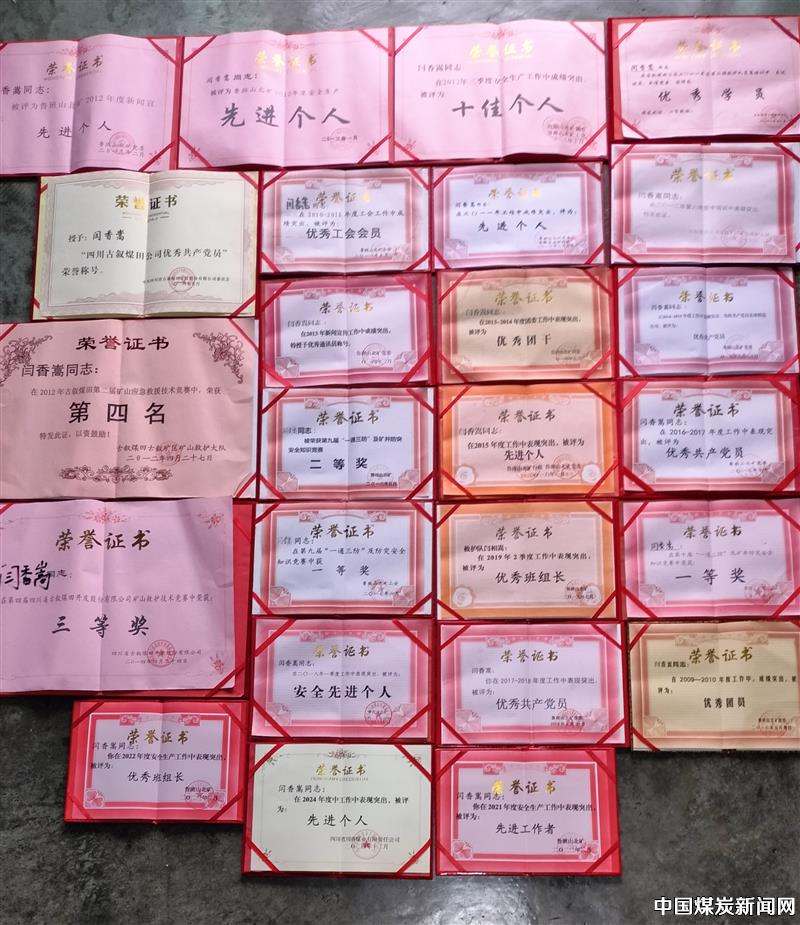 荣誉证书
闫香嵩同志：
被评为鲁班山北矿2012年度新闻宣
先进个人
荣誉证书
闫香嵩同志：
被评为鲁班山北矿2012年度安全生产
先进个人
荣誉证书
闫香嵩同志
在2012年三季度安全生产工作中成绩突出，
被评为
十佳个人
荣誉证书
优秀学员
荣誉证书
授予：闫香嵩
“四川古叙煤田公司优秀共产党员”
荣誉称号。
荣誉证书
在2010-2011年度工会工作中成
绩突出，被评为：
优秀工会会员
荣誉证书
在二〇一一年工作中成绩突出，评为：
先进个人
荣誉证书
闫香嵩同志：
荣誉证书
闫香嵩同志：
在2013年新闻宣传工作中成绩突出，
特授予优秀通讯员称号。
荣誉证书
闫香嵩同志：
在2013-2014年度团委工作中表现突出，
被评为
优秀团干
荣誉证书
闫香嵩同志：
优秀共产党员
荣誉证书
闫香嵩同志：
在2012年古叙煤田第二届矿山应急救援技术竞赛中，荣获
第四名
特发此证，以资鼓励！
古叙煤田四古叙矿区矿山救护大队
二〇一二年四月二十七日
荣誉证书
同志：
被荣获第九届“一通三防”及矿井防突
安全知识竞赛
二等奖
荣誉证书
闫香嵩同志：
在2015年度工作中表现突出，被评为
先进个人
荣誉证书
闫香嵩同志：
在2016-2017年度工作中表现突
出，被评为
优秀共产党员
荣誉证书
闫香嵩同志：
在第四届四川省古叙煤田开发股份有限公司矿山救护技术竞赛中荣获：
三等奖
四川省古叙煤田开发股份有限公司
二〇一四年四月二十四日
荣誉证书
同志：
在第九届“一通三防”及防突安全
知识竞赛中获
一等奖
荣誉证书
救护队闫相嵩：
在2019年2季度工作中表现突出，
被评为
优秀班组长
荣誉证书
闫香嵩：
在第十届“一通三防”及矿井防突安全
知识竞赛中获
一等奖
荣誉证书
闫香嵩同志：
在二〇一八年一季度工作中表现突出，被评为：
安全先进个人
荣誉证书
闫香嵩：
你在2017-2018年度工作中表现突出，
被评为：
优秀共产党员
荣誉证书
闫香嵩同志：
在2009-2010年度工作中，成绩突出，被
评为：
优秀团员
荣誉证书
闫香嵩同志：
你在2022年度安全生产工作中表现突出，
被评为：
优秀班组长
鲁班山北矿
荣誉证书
闫香嵩同志：
在2024年度中工作中表现突出，被评
为：
先进个人
荣誉证书
闫香嵩同志：
你在2021年度安全生产工作中表现突出，
被评为：
先进工作者
鲁班山北矿
中国煤炭新闻网